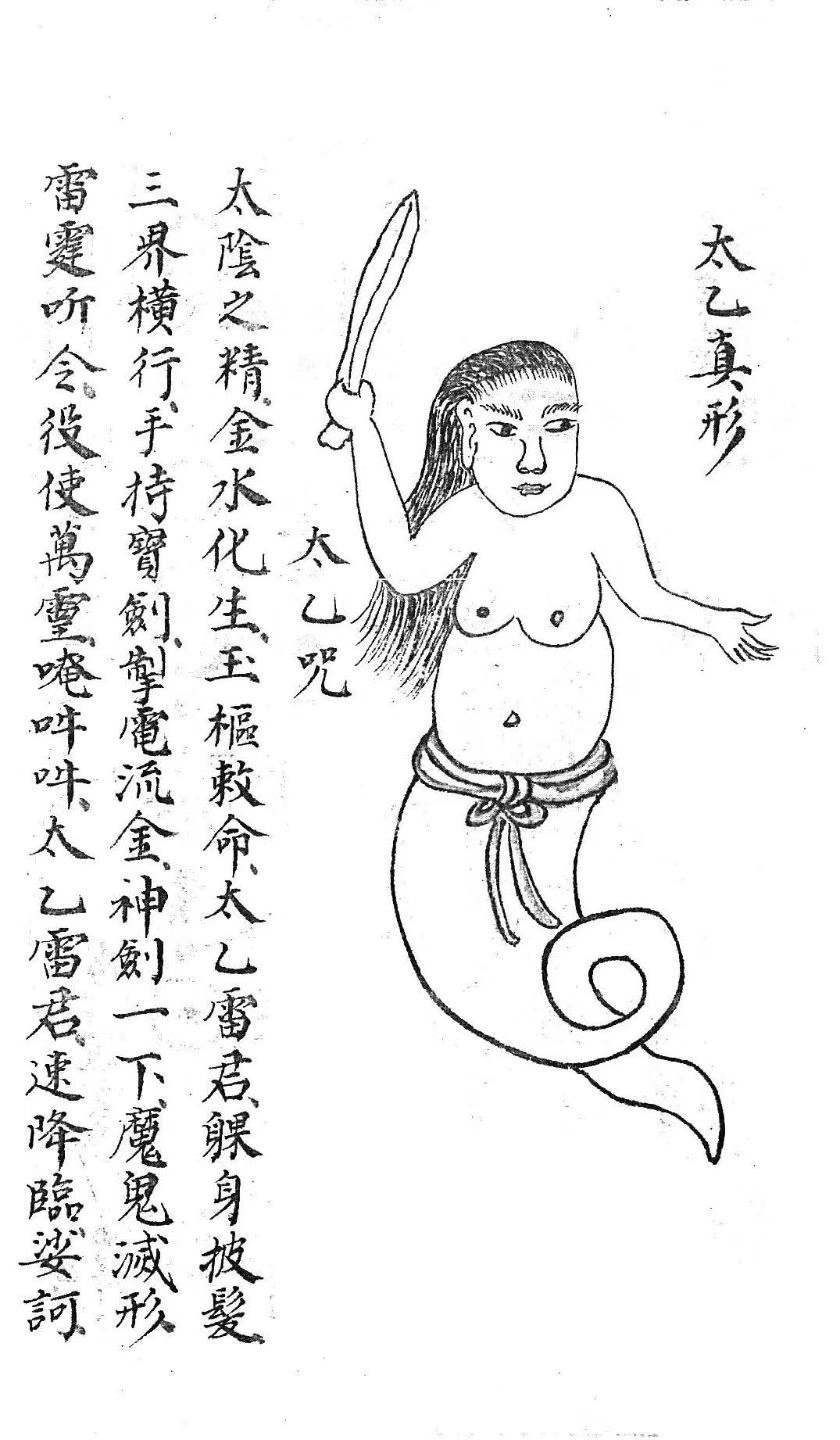 太乙真形
太乙咒
太陰之精、金水化生、玉樞敕命、太乙雷君、躶身披髮、
三界橫行、手持寶劍、掣電流金、神劍一下、魔鬼滅形、
雷霆听令、役使萬靈、唵吽吽、太乙雷君、速降臨娑訶、